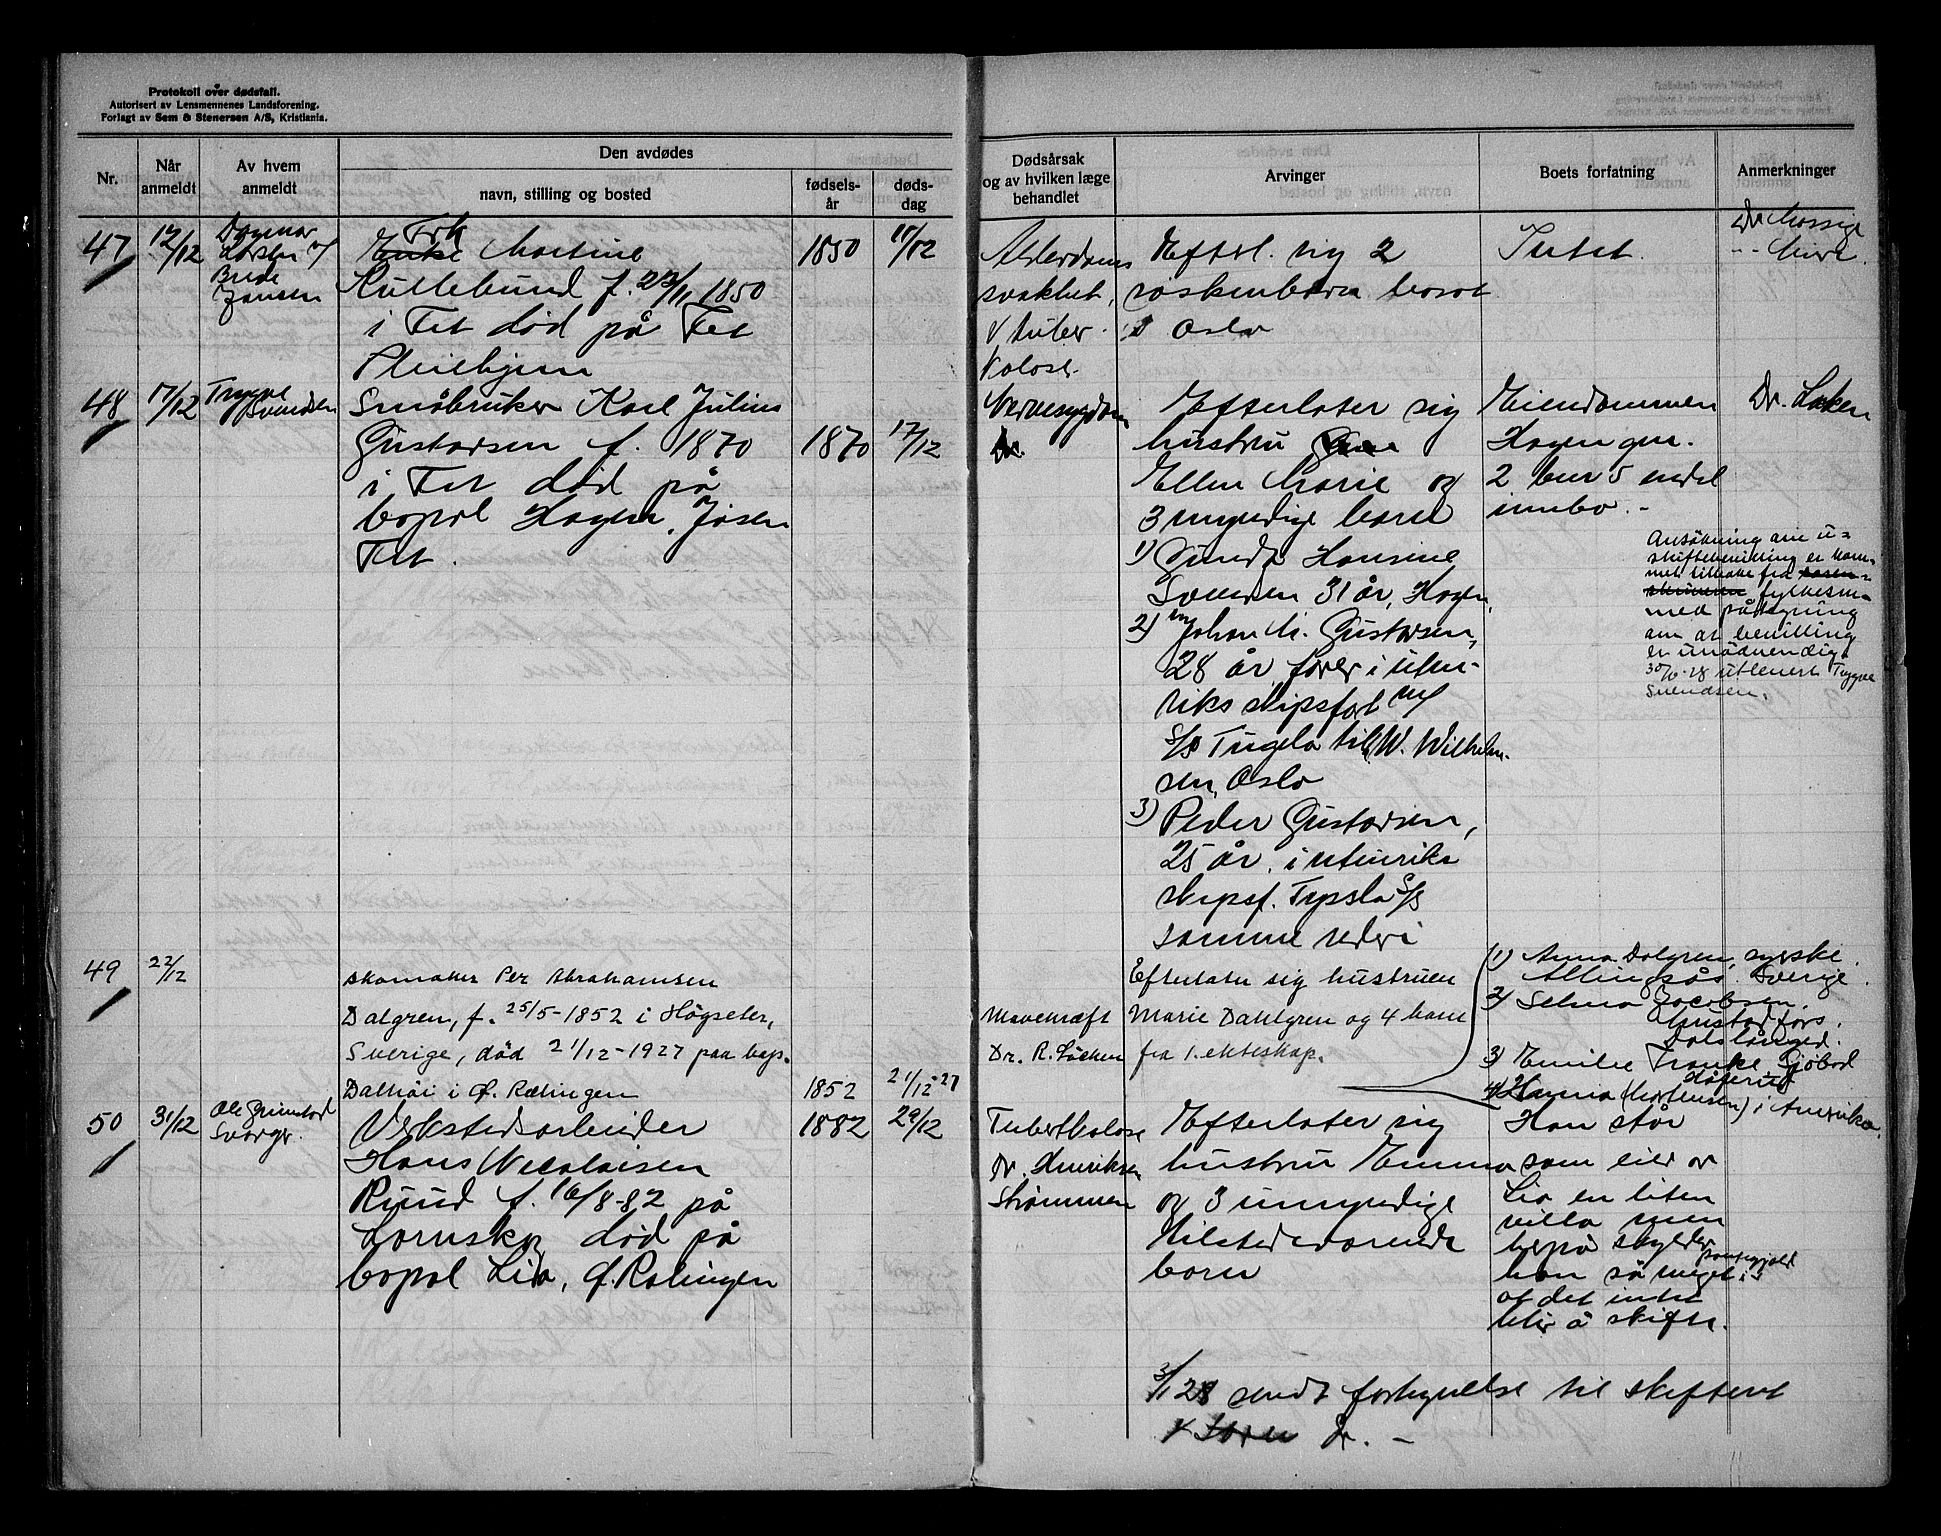 Protokoll over dødsfall.
Autorisert av Lensmennenes Landsforening.
Forlagt av Sem & Stenersen A/S, Kristiania.
Nr.
Når anmeldt
Av hvem anmeldt
Den avdødes
navn, stilling og bosted
fødsels-
år
døds-
dag
Dødsårsak
og av hvilken læge
behandlet
Arvinger
Boets forfatning
Anmerkninger
47
12/12
Dagmar
Brede
Jansen
Frk
Enke Martine
f. 22/11 1850
i Fet død på Fet
Pleiehjem
1850
11/12
Alderdoms
svakhet,
tuber
kolose
Efterl. sig 2
søskenbarn bosat
i Oslo
Intet.
48
17/12
Trygve
Svendsen
Småbruker Karl Julius
Gustavsen f. 1870
i Fet død på
bopæl Hagen, Jøsen
Fet.
1870
17/12
Nervesygdom
Dr.
Efterlater sig
hustru
Ellen Marie og
3 myndige barn
1) Gunda Hansine
Svendsen 31 år, Hagen,
2) Johan M. Gustavsen,
28 år, farer i uten-
riks skipsfart m/
S/S Tugela til W. Wilhelm-
sen, Oslo
3) Peder Gustavsen,
25 år, i utenriks
skipsf. S/S
samme rederi
Eiendommen
Hagen gnr.
2 bnr 5 endel
innbo. -
Dr. Løken
Ansøkning om u-
skiftebevilling er kom-
met tilbake fra soren-
skriveren fylkesm.
med påtegning
om at bevilling
er unødvendig.
utlevert Trygve
Svendsen.
49
22/12
Skomaker Per Abrahamsen
Dalgren, f. 25/5-1852 i Högseter,
Sverige, død 21/12-1927 paa bop.
Dalhöi i Ø. Rælingen
1852
21/12-27
Mavekræft
Dr. R. Løchen
Efterlater sig hustruen
Marie Dahlgren og 4 barn
fra 1. ekteskap.
1) Anna Dalgren,
Allingsås Sverige.
2) Selma Jacobsen,
Dalsland.
3) Emilie
4) Hanna (Mortensen) i Amerika.
50
31/12
Ole Grimstad
Svorger.
Verkstedsarbeider
Hans Nicolaisen
Ruud f. 16/8-82 på
Lørenskog død på
bopæl Lia, Ø. Rælingen
1882
29/12
Tuberkolose
Dr. Henriksen
Strømmen
Efterlater sig
hustru Emma
og 3 umyndige
tilstedeværende
barn
Han står
som eier av
Lia en liten
villa men
herpå skylder
han så meget i pantegjæld
at det intet
blir å skifte.
3/1 28 sendt forhynelse til skifteret